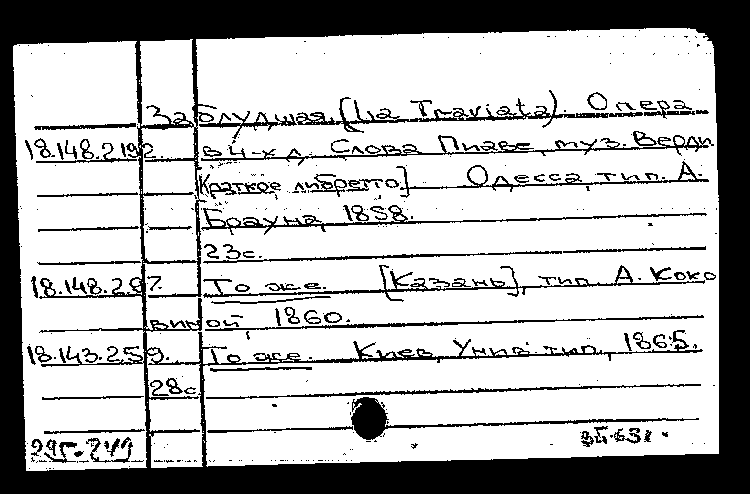 Заблудшая. (La Traviata). Опера
18.148.2.192. в 4-х д. Слова Пиаве, муз. Верди
[Краткое либретто.] Одесса, тип. А.
Брауна, 1858.
23с.
18.148.2.87. То же. [Казань], тип. А. Коко
виной, 1860.
18.143.2.59. То же. Киев, Унив. тип., 1865.
28с.